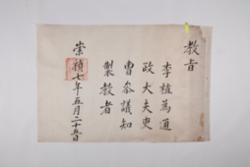 教旨
李植爲通
政大夫吏
曹參議知
製教者
崇禎七年五月二十日